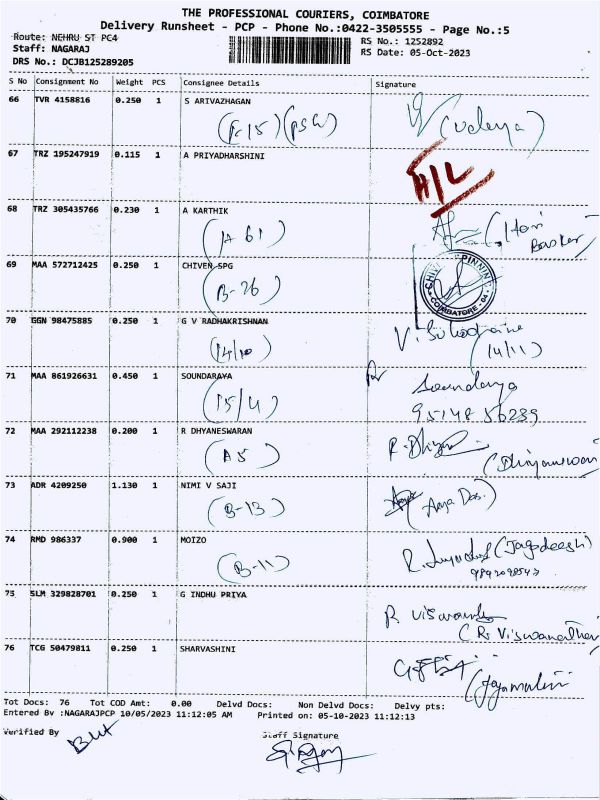 THE PROFESSIONAL COURIERS, COIMBATORE
Delivery Runsheet - PCP - Phone No.:0422-3505555 - Page No.:5
Route: NEHRU ST PC4
RS No.: 1252892
Staff: NAGARAJ
RS Date: 05-Oct-2023
DRS No.: DCJB125289205
S No Consignment No Weight PCS Consignee Details Signature
66 TVR 4158816 0.250 1 S ARIVAZHAGAN
67 TRZ 195247919 0.115 1 A PRIYADHARSHINI
H/L
68 TRZ 305435766 0.230 1 A KARTHIK
(A 61) (Hari
Basker)
69 MAA 572712425 0.250 1 CHIVEN SPG
(B-26)
COIMBATORE
70 GGN 98475885 0.250 1 G V RADHAKRISHNAN
(14/10) (14/11)
71 MAA 861926631 0.450 1 SOUNDARAYA
(15/4) Soundarya
72 MAA 292112238 0.200 1 R DHYANESWARAN
(A5)
73 ADR 4209250 1.130 1 NIMI V SAJI
(B-13)
74 RMD 986337 0.900 1 MOIZO
(B-11) (Jagadeesh)
75 SLM 329828701 0.250 1 G INDHU PRIYA
76 TCG 50479811 0.250 1 SHARVASHINI
Tot Docs: 76 Tot COD Amt: 0.00 Delvd Docs: Non Delvd Docs: Delvy pts:
Entered By :NAGARAJPCP 10/05/2023 11:12:05 AM Printed on: 05-10-2023 11:12:13
Verified By Staff Signature